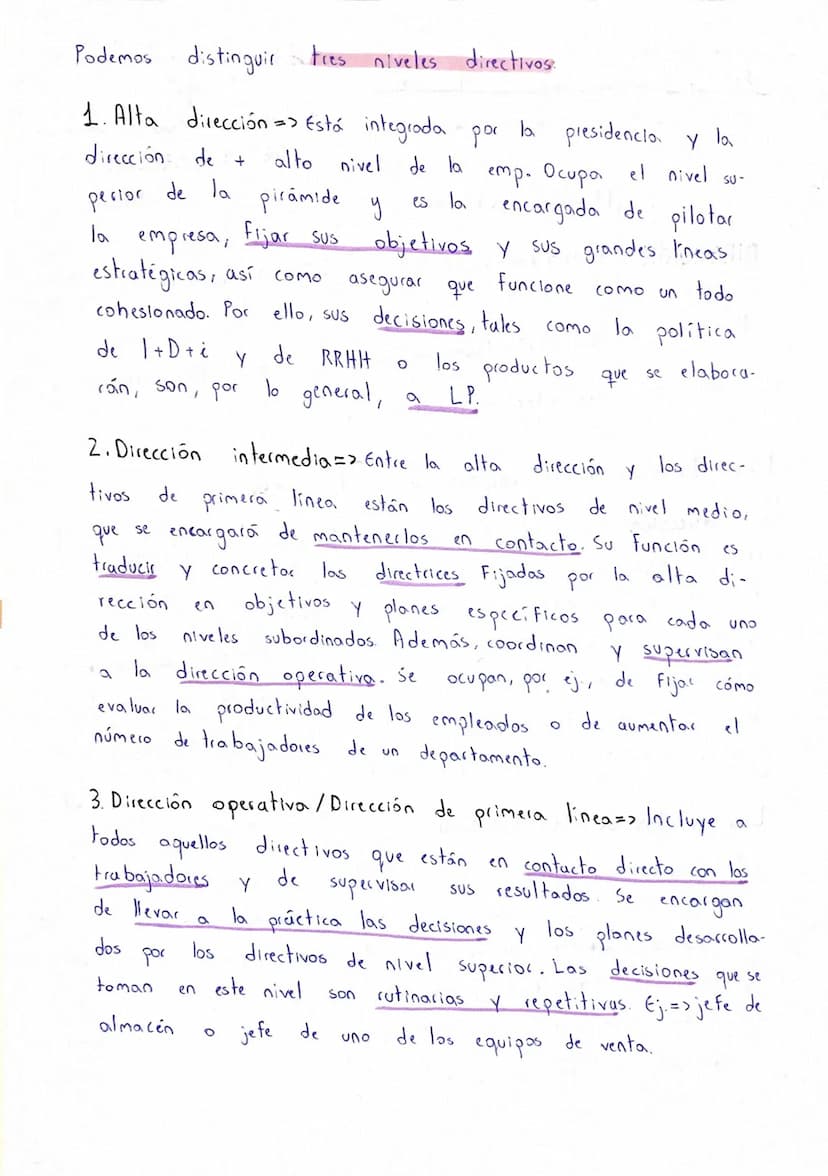 Podemos distinguir tres niveles directivos:
1. Alta dirección => Está integrada por la presidencia y la
dirección de + alto nivel de la emp. Ocupa el nivel su-
perior de la pirámide y es la encargada de pilotar
la empresa, fijar sus objetivos y sus grandes líneas
estratégicas, así como asegurar que funcione como un todo
cohesionado. Por ello, sus decisiones, tales como la política
de I+D+i y de RRHH o los productos que se elabora-
rán, son, por lo general, a LP.
2. Dirección intermedia => Entre la alta dirección y los direc-
tivos de primera línea están los directivos de nivel medio,
que se encargará de mantenerlos en contacto. Su función es
traducir y concretar las directrices fijadas por la alta di-
rección en objetivos y planes específicos para cada uno
de los niveles subordinados. Además, coordinan y supervisan
a la dirección operativa. Se ocupan, por ej., de fijar cómo
evaluar la productividad de los empleados o de aumentar el
número de trabajadores de un departamento.
3. Dirección operativa / Dirección de primera línea => Incluye a
todos aquellos directivos que están en contacto directo con los
trabajadores y de supervisar sus resultados. Se encargan
de llevar a la práctica las decisiones y los planes desarrolla-
dos por los directivos de nivel superior. Las decisiones que se
toman en este nivel son rutinarias y repetitivas. Ej. => jefe de
almacén o jefe de uno de los equipos de venta.